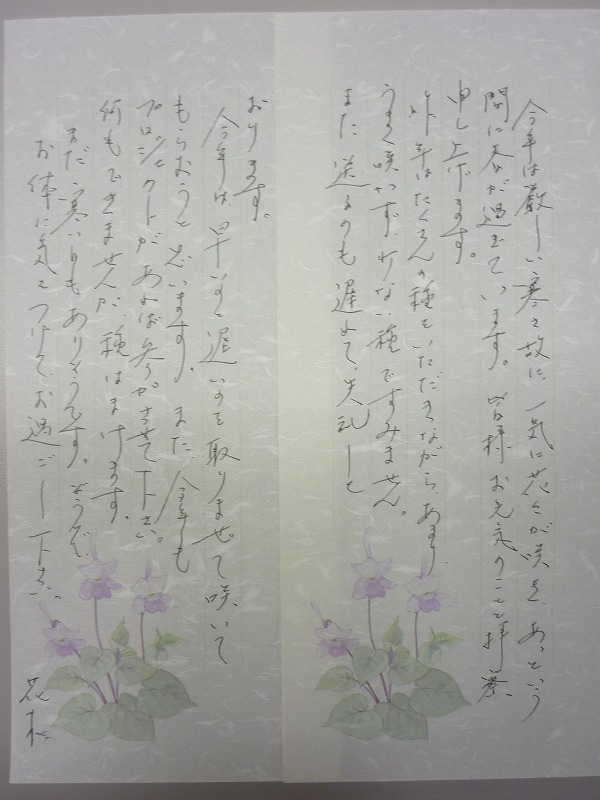 今年は厳しい寒さ故に、一気に花々が咲き、あっという
間に春が過ぎています。皆様お元気のことと拝察
申し上げます。
昨年はたくさんの種をいただきながら、あまり
うまく咲かず、少ない種ですみません。
また、送るのも遅れて、失礼して
おります。
今年は、早いのと遅いのを取りまぜて咲いて
もらおうと思います。また、今年も
プロジェクトがあれば参加させて下さい。
何もできませんが、種はまけます。
まだ寒い日もありそうです。どうぞ、
お体に気をつけて、お過ごし下さい。
花